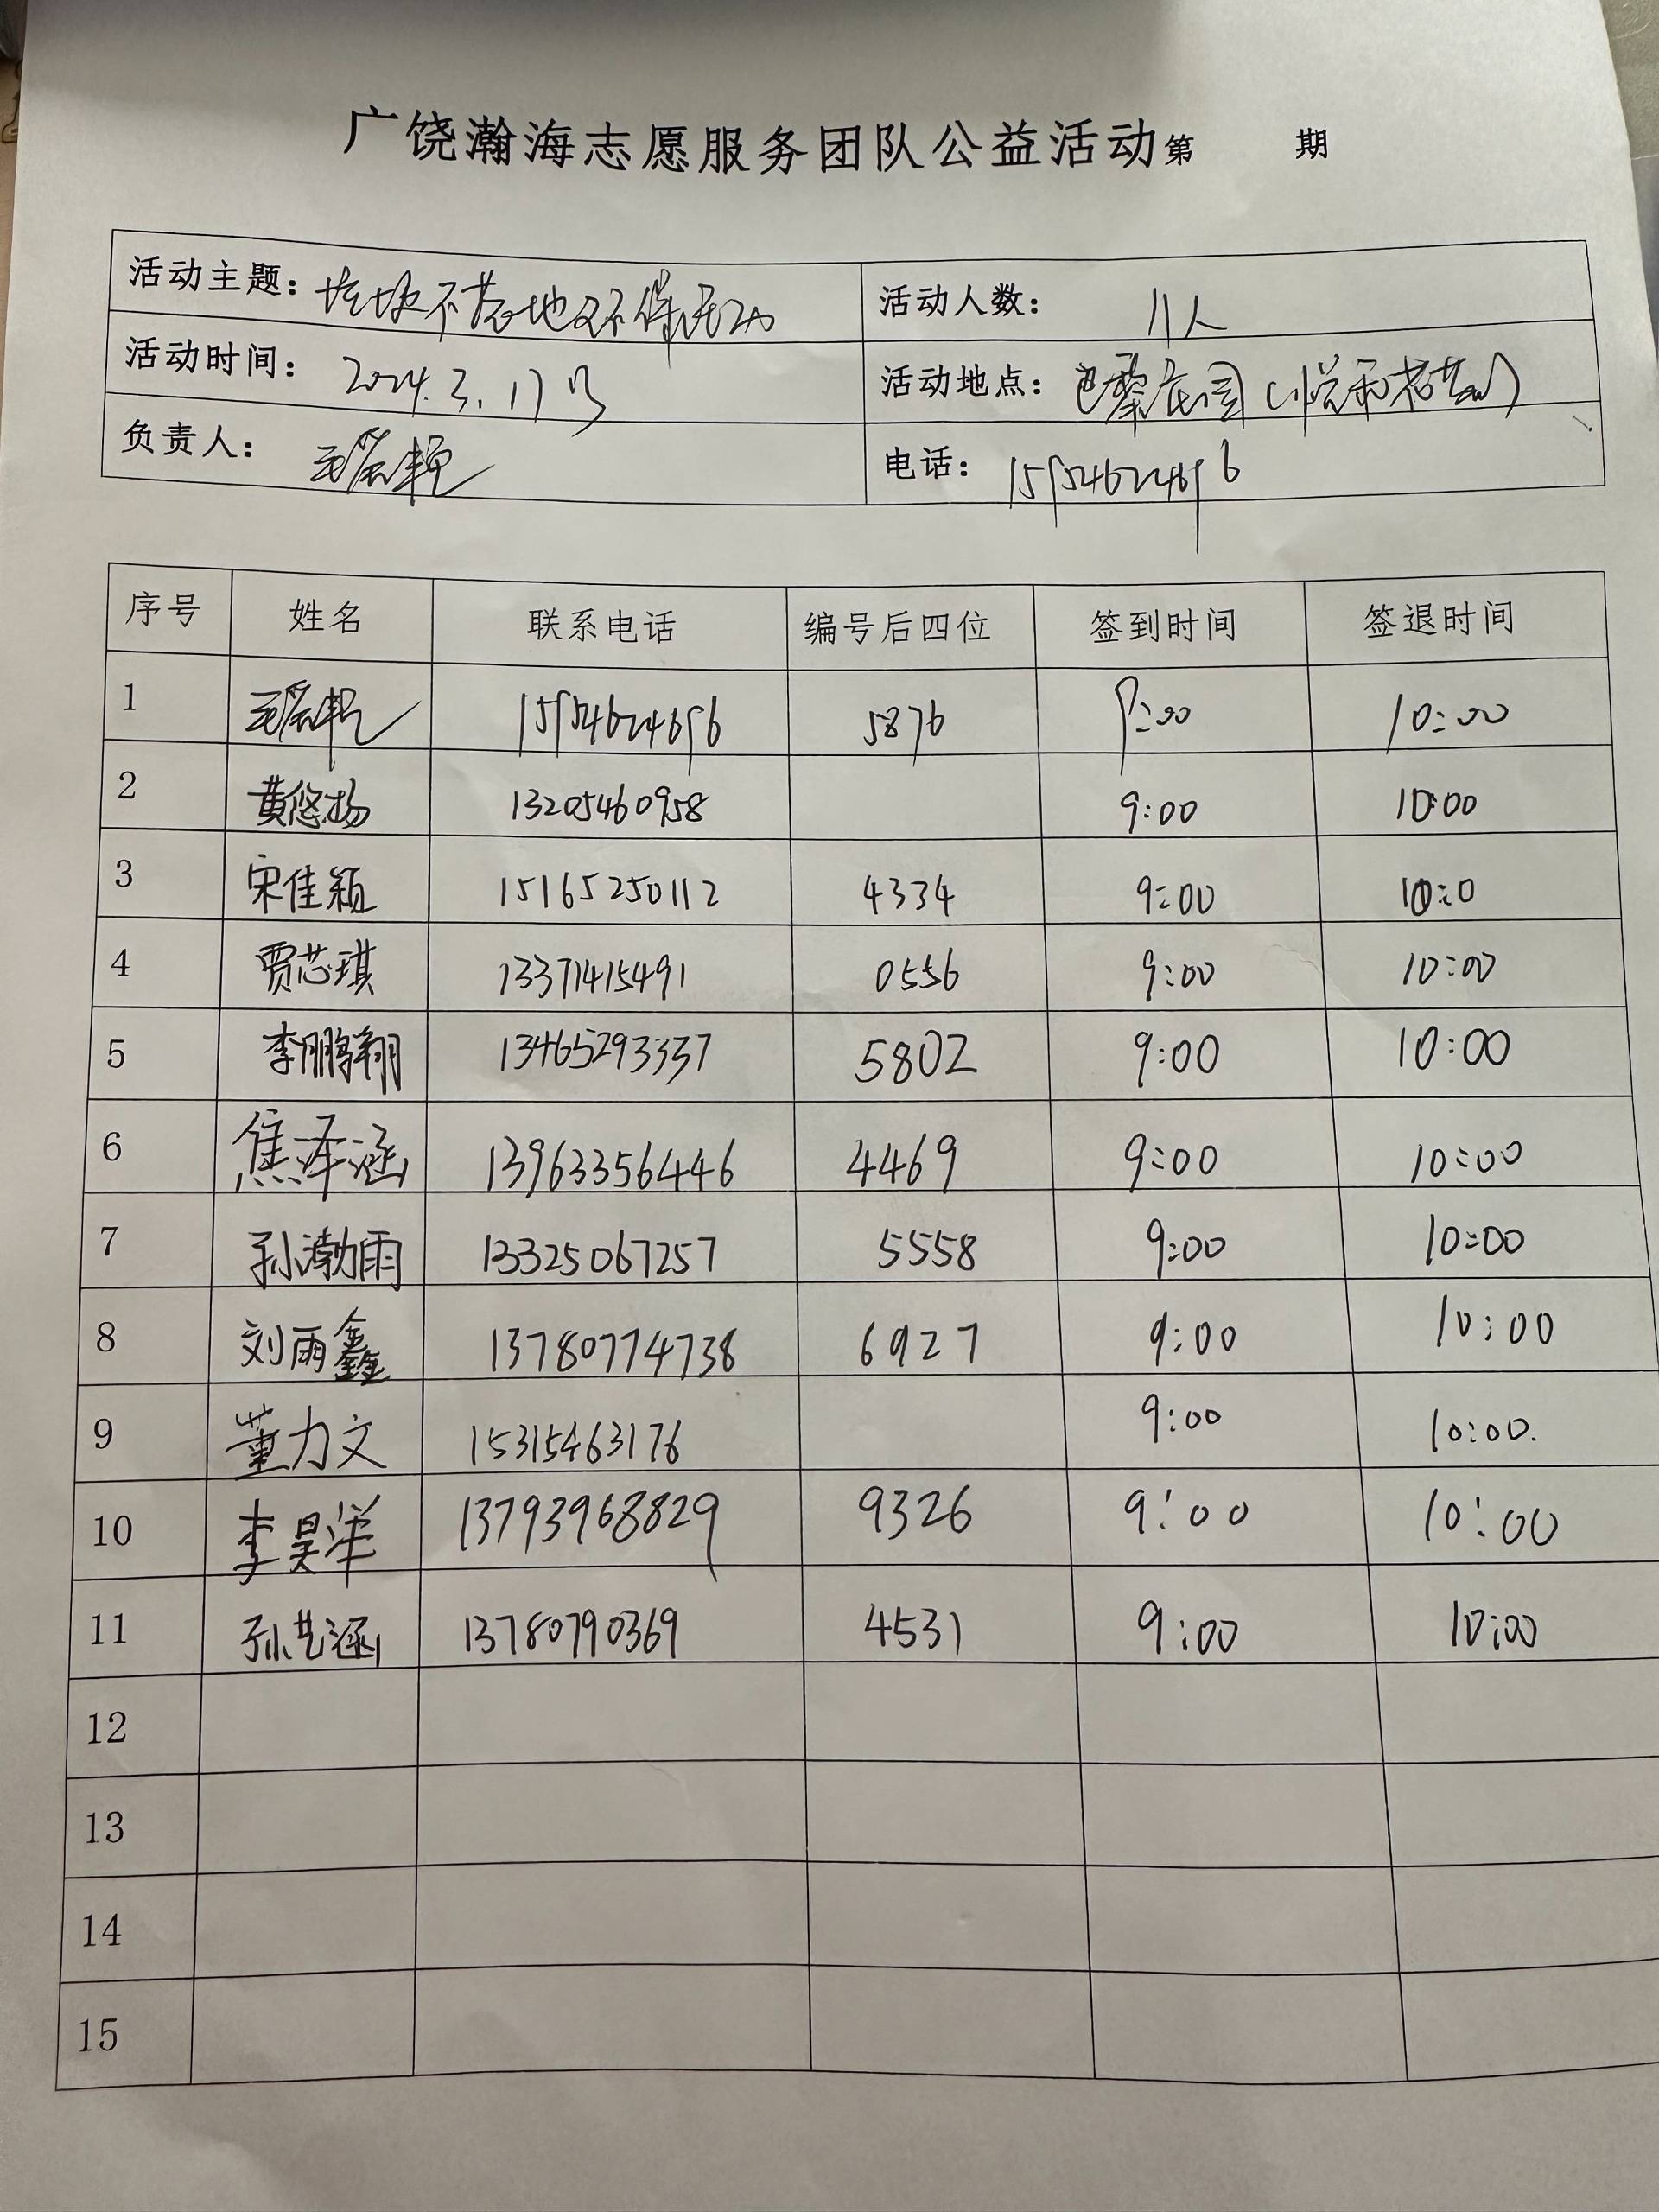 广饶瀚海志愿服务团队公益活动第 期
活动主题：垃圾不落地 环保 活动人数：11人
活动时间：2024.3.17号 活动地点：巴黎庄园
负责人： 电话：
序号 姓名 联系电话 编号后四位 签到时间 签退时间
1 5876 9:00 10:00
2 黄悠扬 13205460958 9:00 10:00
3 宋佳颖 15165250112 4334 9:00 10:0
4 贾芯琪 13371415491 0556 9:00 10:00
5 李鹏翔 13465293337 5802 9:00 10:00
6 焦泽涵 13963356446 4469 9:00 10:00
7 孙渤雨 13325067257 5558 9:00 10:00
8 刘雨鑫 13780774738 6927 9:00 10:00
9 董力文 15315463176 9:00 10:00.
10 李昊洋 13793968829 9326 9:00 10:00
11 孙艺涵 13780790369 4531 9:00 10:00
12
13
14
15